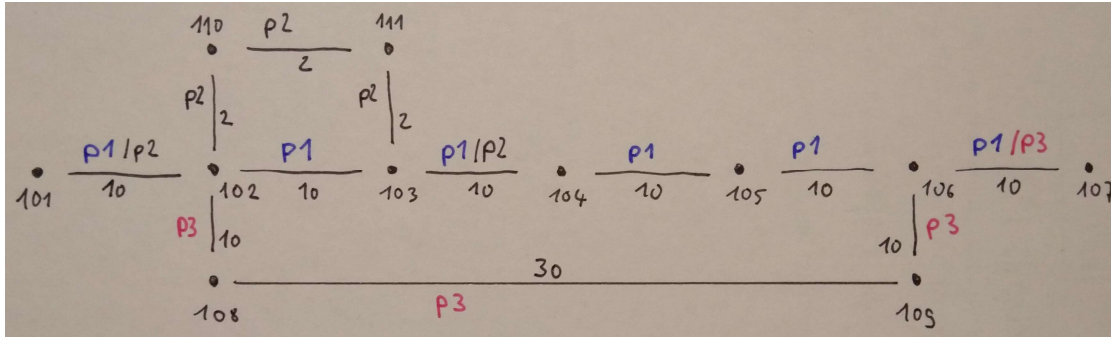 110 p2 111
2
p2 2 p2 2
p1/p2 p1 p1/p2 p1 p1 p1/p3
101 10 102 10 103 10 104 10 105 10 106 10 107
p3 10 10 p3
30
108 p3 109